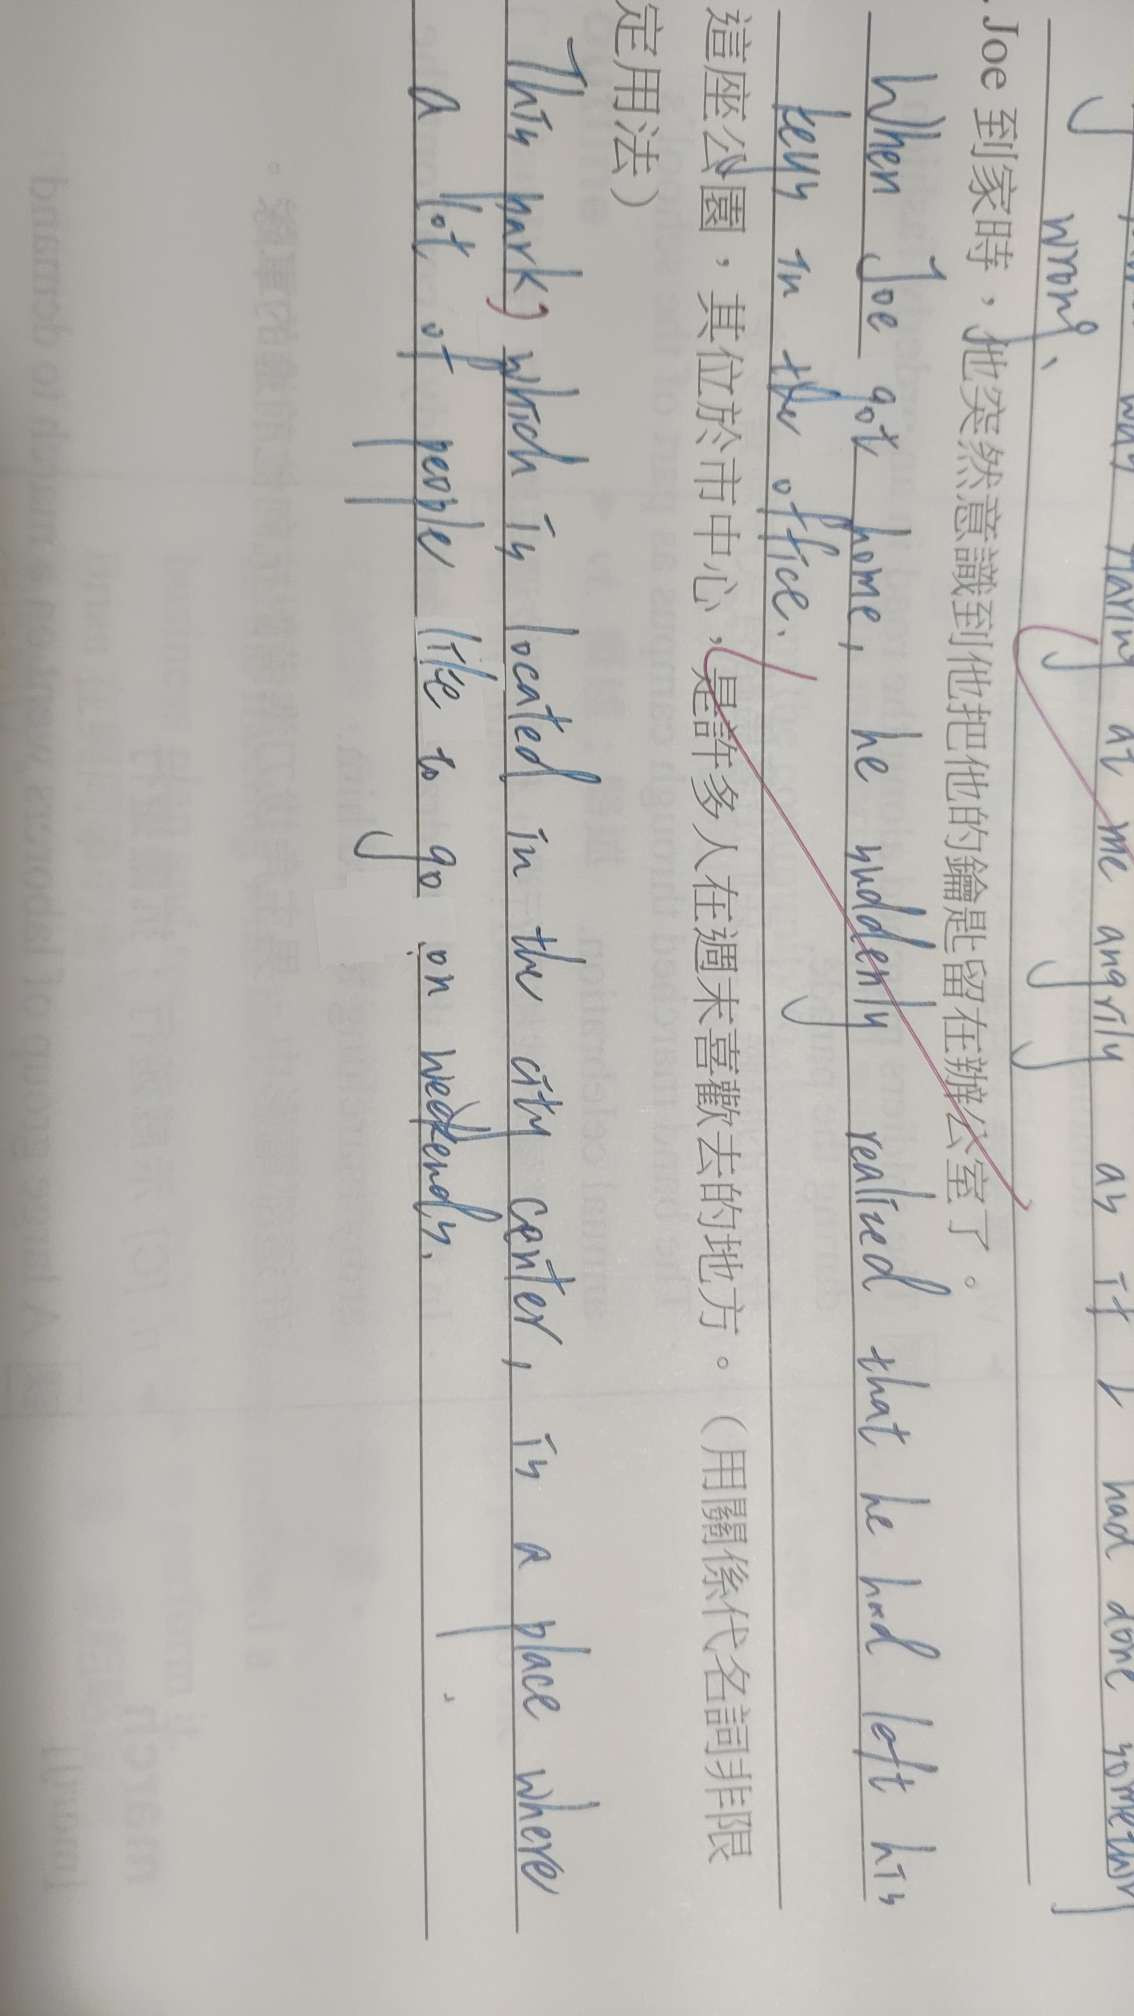 was staring at me angrily as if I had done something
wrong.
. Joe 到家時，他突然意識到他把他的鑰匙留在辦公室了。
When Joe got home, he suddenly realized that he had left his
keys in the office.
這座公園，其位於市中心，是許多人在週末喜歡去的地方。（用關係代名詞非限
定用法）
This park, which is located in the city center, is a place where
a lot of people like to go on weekends.